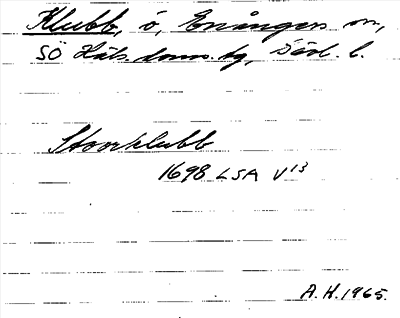 Klubb, ö, Enångers sn,
SÖ Häls. doms.bg, Gävl. l.
Storklubb
1698 LSA V13
A.H.1965.